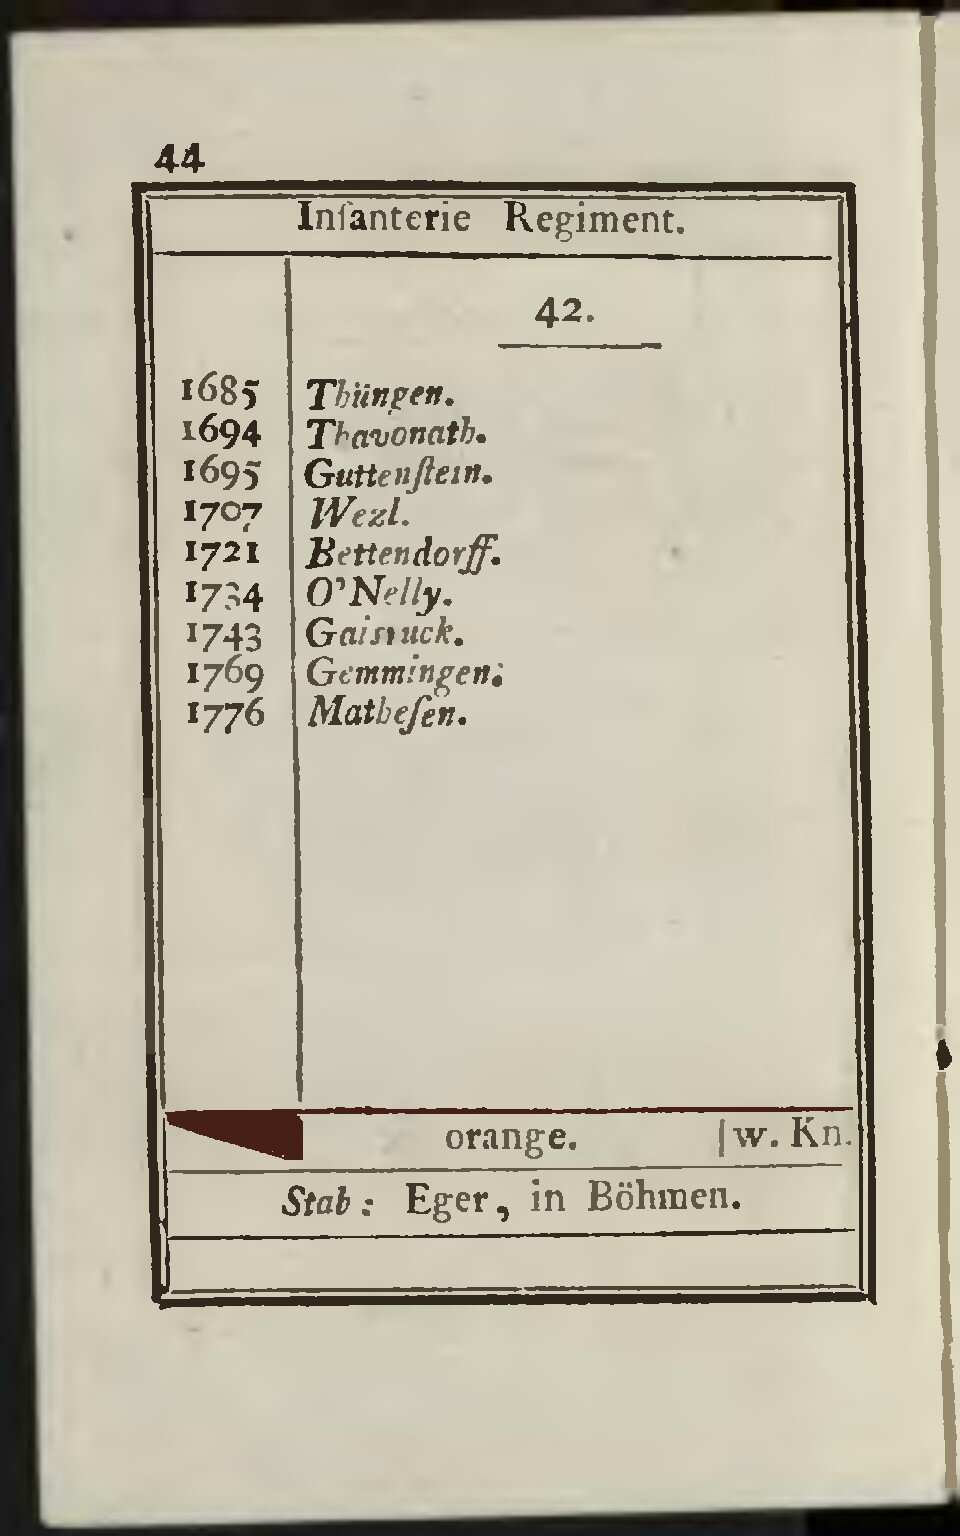 44
Infanterie Regiment.
42.
1685 Thüngen.
1694 Thavonath.
1695 Guttenſtein.
1707 Wezl.
1721 Bettendorff.
1734 O'Nelly.
1743 Gaisruck.
1769 Gemmingen.
1776 Matheſen.
orange. | w. Kn.
Stab: Eger, in Böhmen.